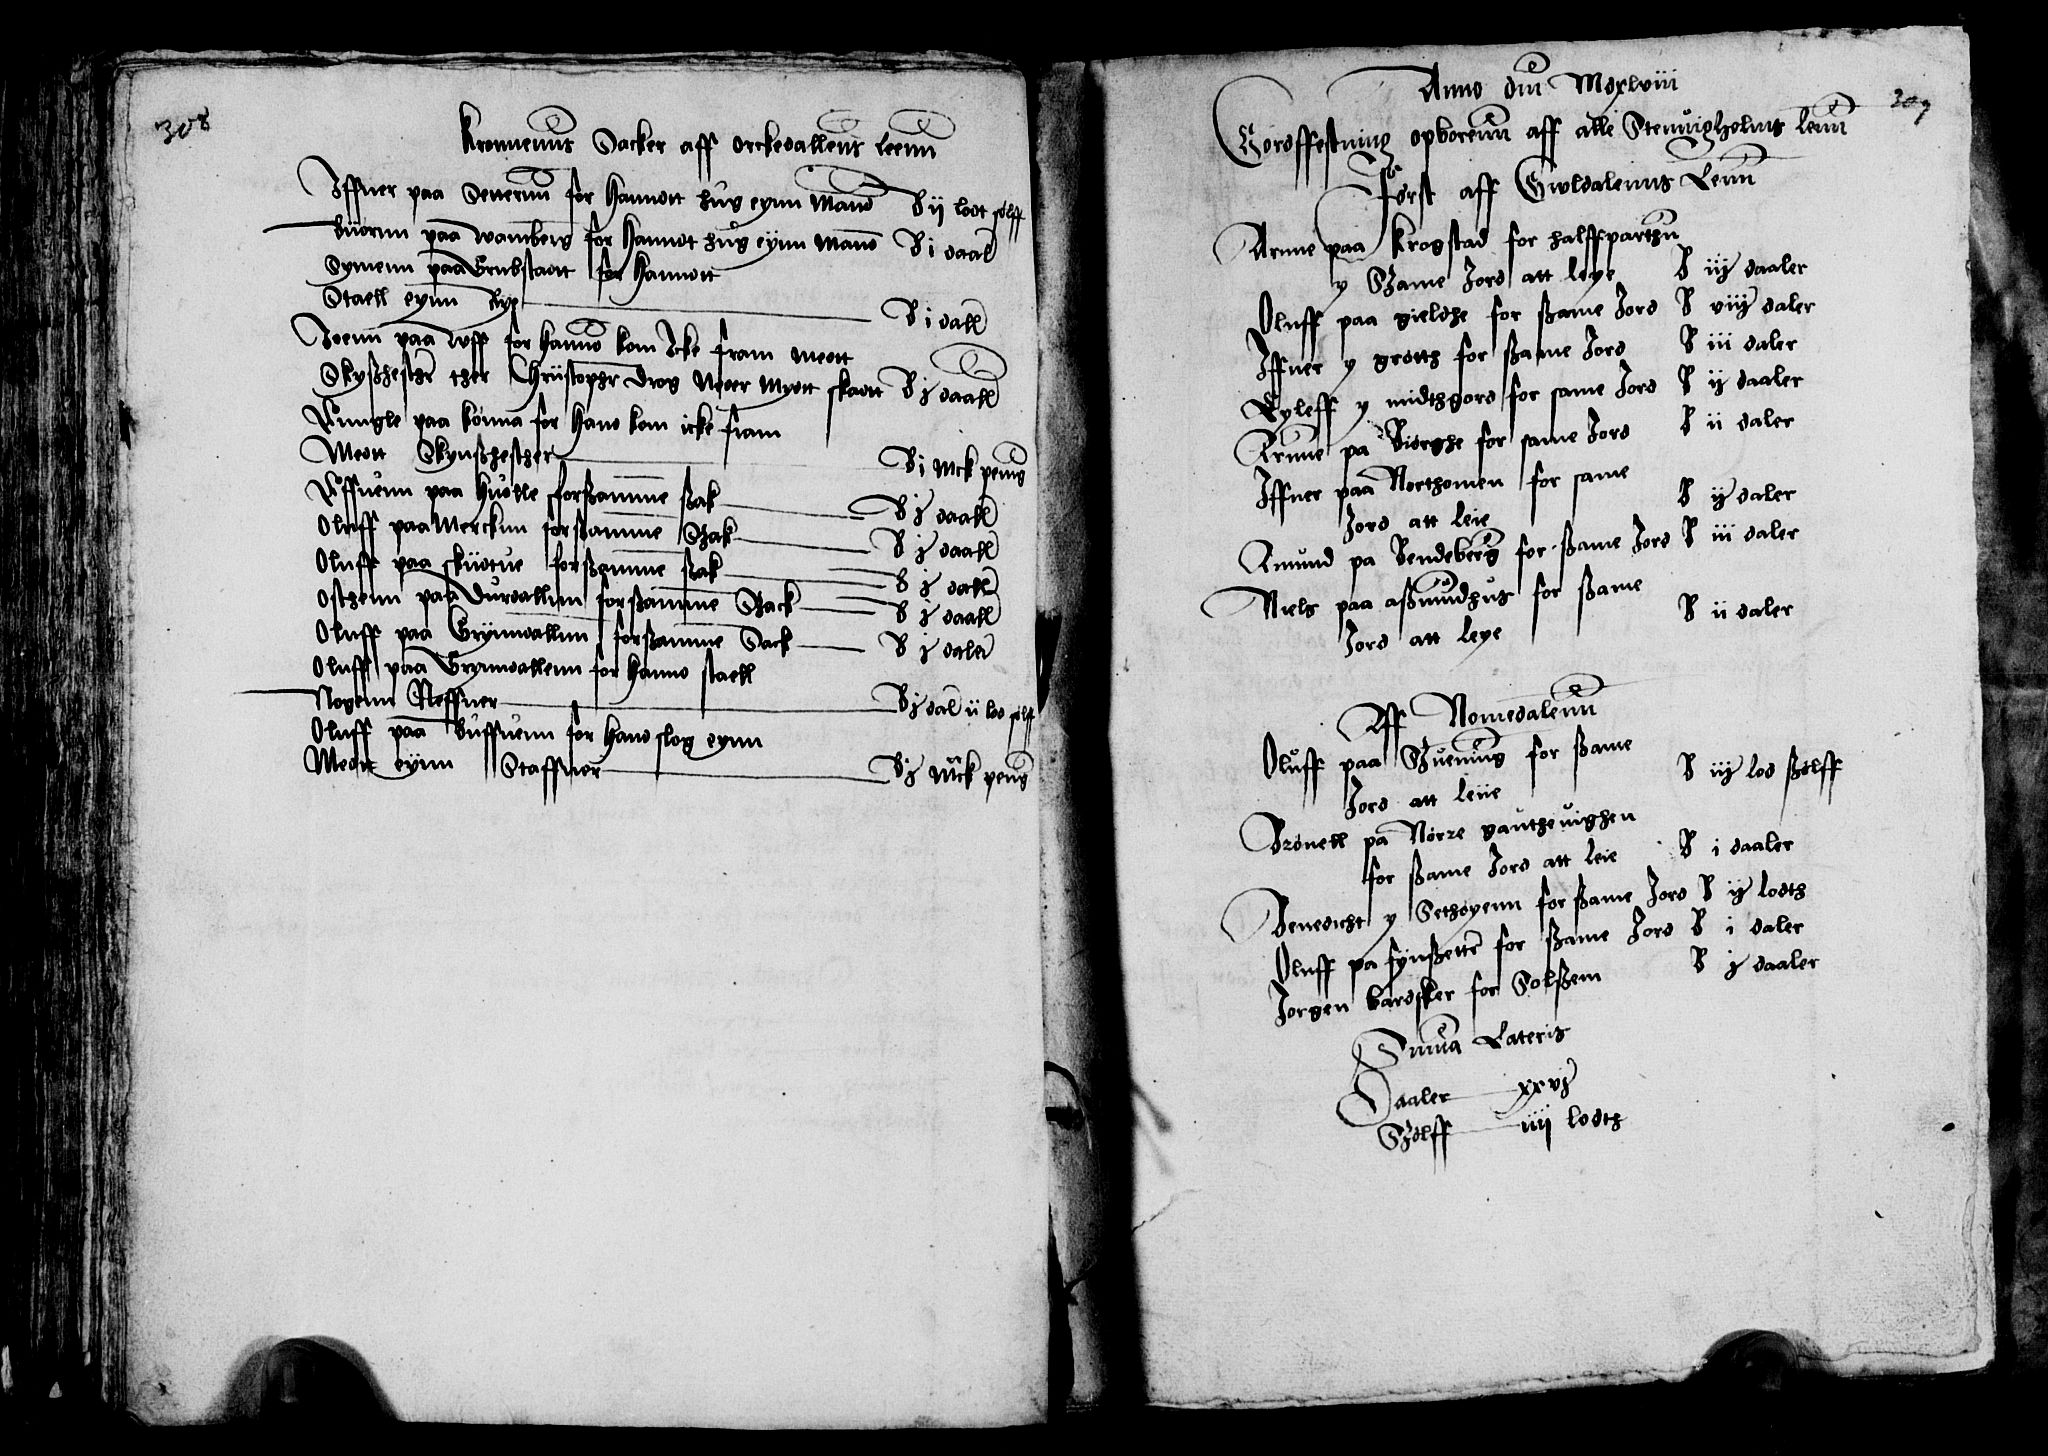 308
Kronnenns Sacker aff Orckedallens Leenn
Iffuer paa Setternn for Hanndt hug eynn Mand B ij lodt sølff
Biiørnn paa wamberg for Hanndt hug eÿnn Mand B i daal
Symenn paa Grubstadt for Hanndt
Staell eynn Ryg B i dall
Joenn paa Uff for Hannd kom Icke fram medtt
Skyßhesthr ther Chriistopher drog Neder Medtt skadtt B j daall
Ringle paa konna for Hand kom icke fram
Medtt Skynßhesther B i Mck peng
Effuenn paa Huolle forßamme ßak B j daall
Oluff paa Mercknn forßamme Szak B j daall
Oluff paa skiidtue forßamme ßak B j dall
Osthenn paa Durdallnn forßamme Szack B j daall
Oluff paa Grÿnndallnn forßamme Sack B j daler
Oluff paa Grynndallenn for Hannd staell
Nogenn Neffuer B j dal ij lod sølff
Oluff paa Buffuenn for Hand slog eynn
Medtt eynn Staffuer B j Mck peng
309
Anno dni Mdxlviii
Gordffestning opborenn aff alle Stenuigholms lenn
Først aff Guldalenns Lenn
Arnne paa Krogstad for halffparthn
y Szame Jord att leye B iij daaler
Oluff paa gieldhe for ßame Jord B viij daler
Iffuer y grotth for ßame Jord B iii daler
Eyleff y midthgord for same Jord B ij daaler
Arnne pa Biørghe for same Jord B ii daler
Iffuer paa Northomen for same
Jord att leie B ij daler
Amund pa Rendeberg for ßame Jord B iii daler
Niels paa aßmundhus for ßame
Jord att leye B ii daler
Aff Nomedalenn
Oluff paa Szuening for ßame
Jord att leiie B iij lod ßølff
Brønell pa Nørre gautheuighen
for ßame Jord att leie B i daaler
Benedicht y Sethøyenn for ßame Jord B ij lodth
Oluff pa fynßetter for ßame Jord B i daler
Jørgen bardsker for Solßem B j daaler
Suma Lateris
Daaler xxvj
Szølff iiij lodth